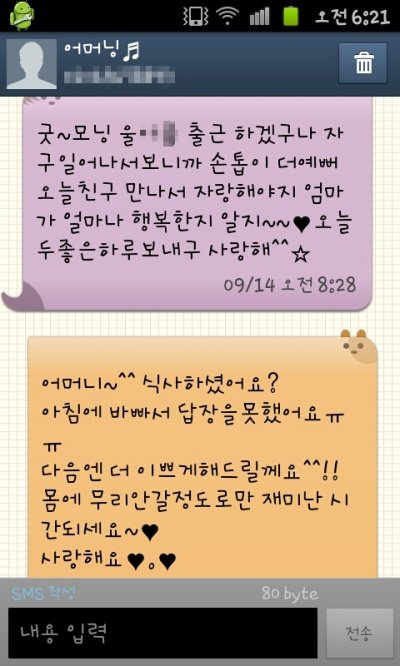 오전 6:21
어머닝♬
굿~모닝 울 출근 하겠구나 자
구일어나서보니까 손톱이 더예뻐
오늘친구 만나서 자랑해야지 엄마
가 얼마나 행복한지 알지~~♥오늘
두좋은하루보내구 사랑해^^☆
09/14 오전 8:28
어머니~^^ 식사하셨어요?
아침에 바빠서 답장을못했어요ㅠ
ㅠ
다음엔 더 이쁘게해드릴께요^^!!
몸에 무리안갈정도로만 재미난 시
간되세요~♥
사랑해요♥.♥
SMS 작성 80 byte
내용 입력 전송